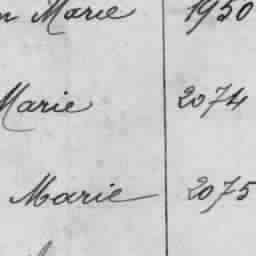 n Marie 1950
Marie 2074
Marie 2075